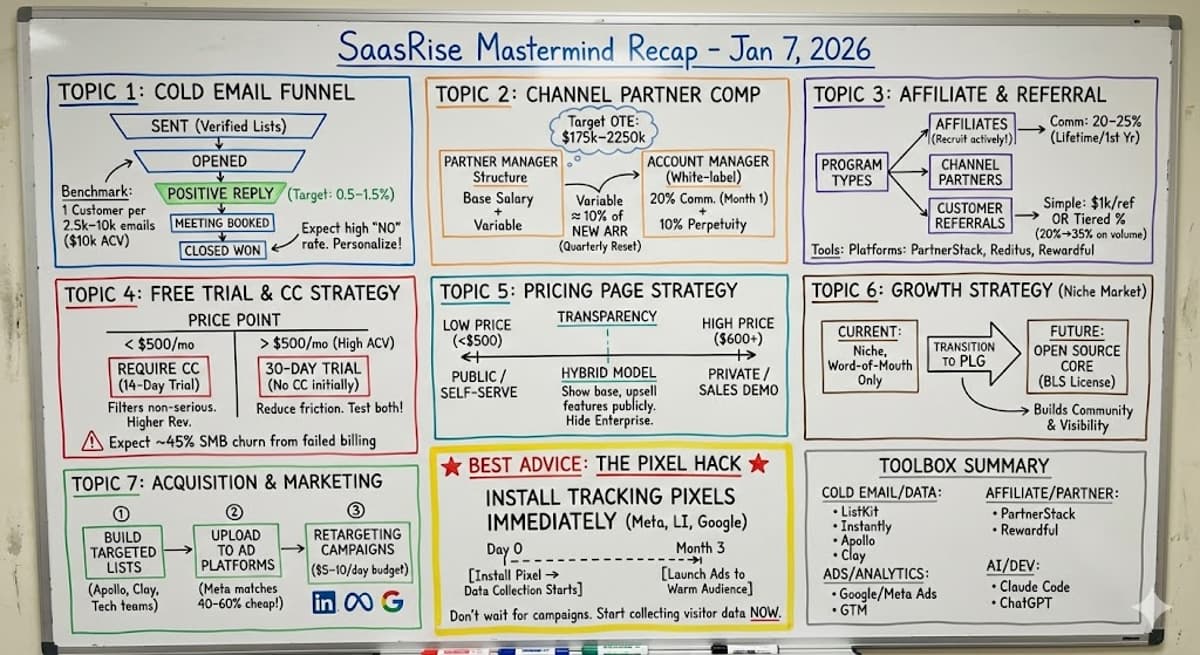 SaasRise Mastermind Recap - Jan 7, 2026
TOPIC 1: COLD EMAIL FUNNEL
SENT (Verified Lists)
OPENED
POSITIVE REPLY (Target: 0.5-1.5%)
MEETING BOOKED
CLOSED WON
Benchmark:
1 Customer per
2.5k-10k emails
($10k ACV)
Expect high "NO"
rate. Personalize!
TOPIC 2: CHANNEL PARTNER COMP
Target OTE:
$175k-2250k
PARTNER MANAGER
Structure
Base Salary
+
Variable
Variable
≈ 10% of
NEW ARR
(Quarterly Reset)
ACCOUNT MANAGER
(White-label)
20% Comm. (Month 1)
+
10% Perpetuity
TOPIC 3: AFFILIATE & REFERRAL
PROGRAM
TYPES
AFFILIATES
(Recruit actively!)
Comm: 20-25%
(Lifetime/1st Yr)
CHANNEL
PARTNERS
CUSTOMER
REFERRALS
Simple: $1k/ref
OR Tiered %
(20%→35% on volume)
Tools: Platforms: PartnerStack, Reditus, Rewardful
TOPIC 4: FREE TRIAL & CC STRATEGY
PRICE POINT
< $500/mo
REQUIRE CC
(14-Day Trial)
Filters non-serious.
Higher Rev.
> $500/mo (High ACV)
30-DAY TRIAL
(No CC initially)
Reduce friction. Test both!
Expect ~45% SMB churn from failed billing
TOPIC 5: PRICING PAGE STRATEGY
LOW PRICE
(<$500)
PUBLIC /
SELF-SERVE
TRANSPARENCY
HYBRID MODEL
Show base, upsell
features publicly.
Hide Enterprise.
HIGH PRICE
($600+)
PRIVATE /
SALES DEMO
TOPIC 6: GROWTH STRATEGY (Niche Market)
CURRENT:
Niche,
Word-of-Mouth
Only
TRANSITION
TO PLG
FUTURE:
OPEN SOURCE
CORE
(BLS License)
Builds Community
& Visibility
TOPIC 7: ACQUISITION & MARKETING
1
BUILD
TARGETED
LISTS
(Apollo, Clay,
Tech teams)
2
UPLOAD
TO AD
PLATFORMS
(Meta matches
40-60% cheap!)
3
RETARGETING
CAMPAIGNS
($5-10/day budget)
in
G
BEST ADVICE: THE PIXEL HACK
INSTALL TRACKING PIXELS
IMMEDIATELY (Meta, LI, Google)
Day 0
[Install Pixel →
Data Collection Starts]
Month 3
[Launch Ads to
Warm Audience]
Don't wait for campaigns. Start collecting visitor data NOW.
TOOLBOX SUMMARY
COLD EMAIL/DATA:
• ListKit
• Instantly
• Apollo
• Clay
ADS/ANALYTICS:
• Google/Meta Ads
• GTM
AFFILIATE/PARTNER:
• PartnerStack
• Rewardful
AI/DEV:
• Claude Code
• ChatGPT